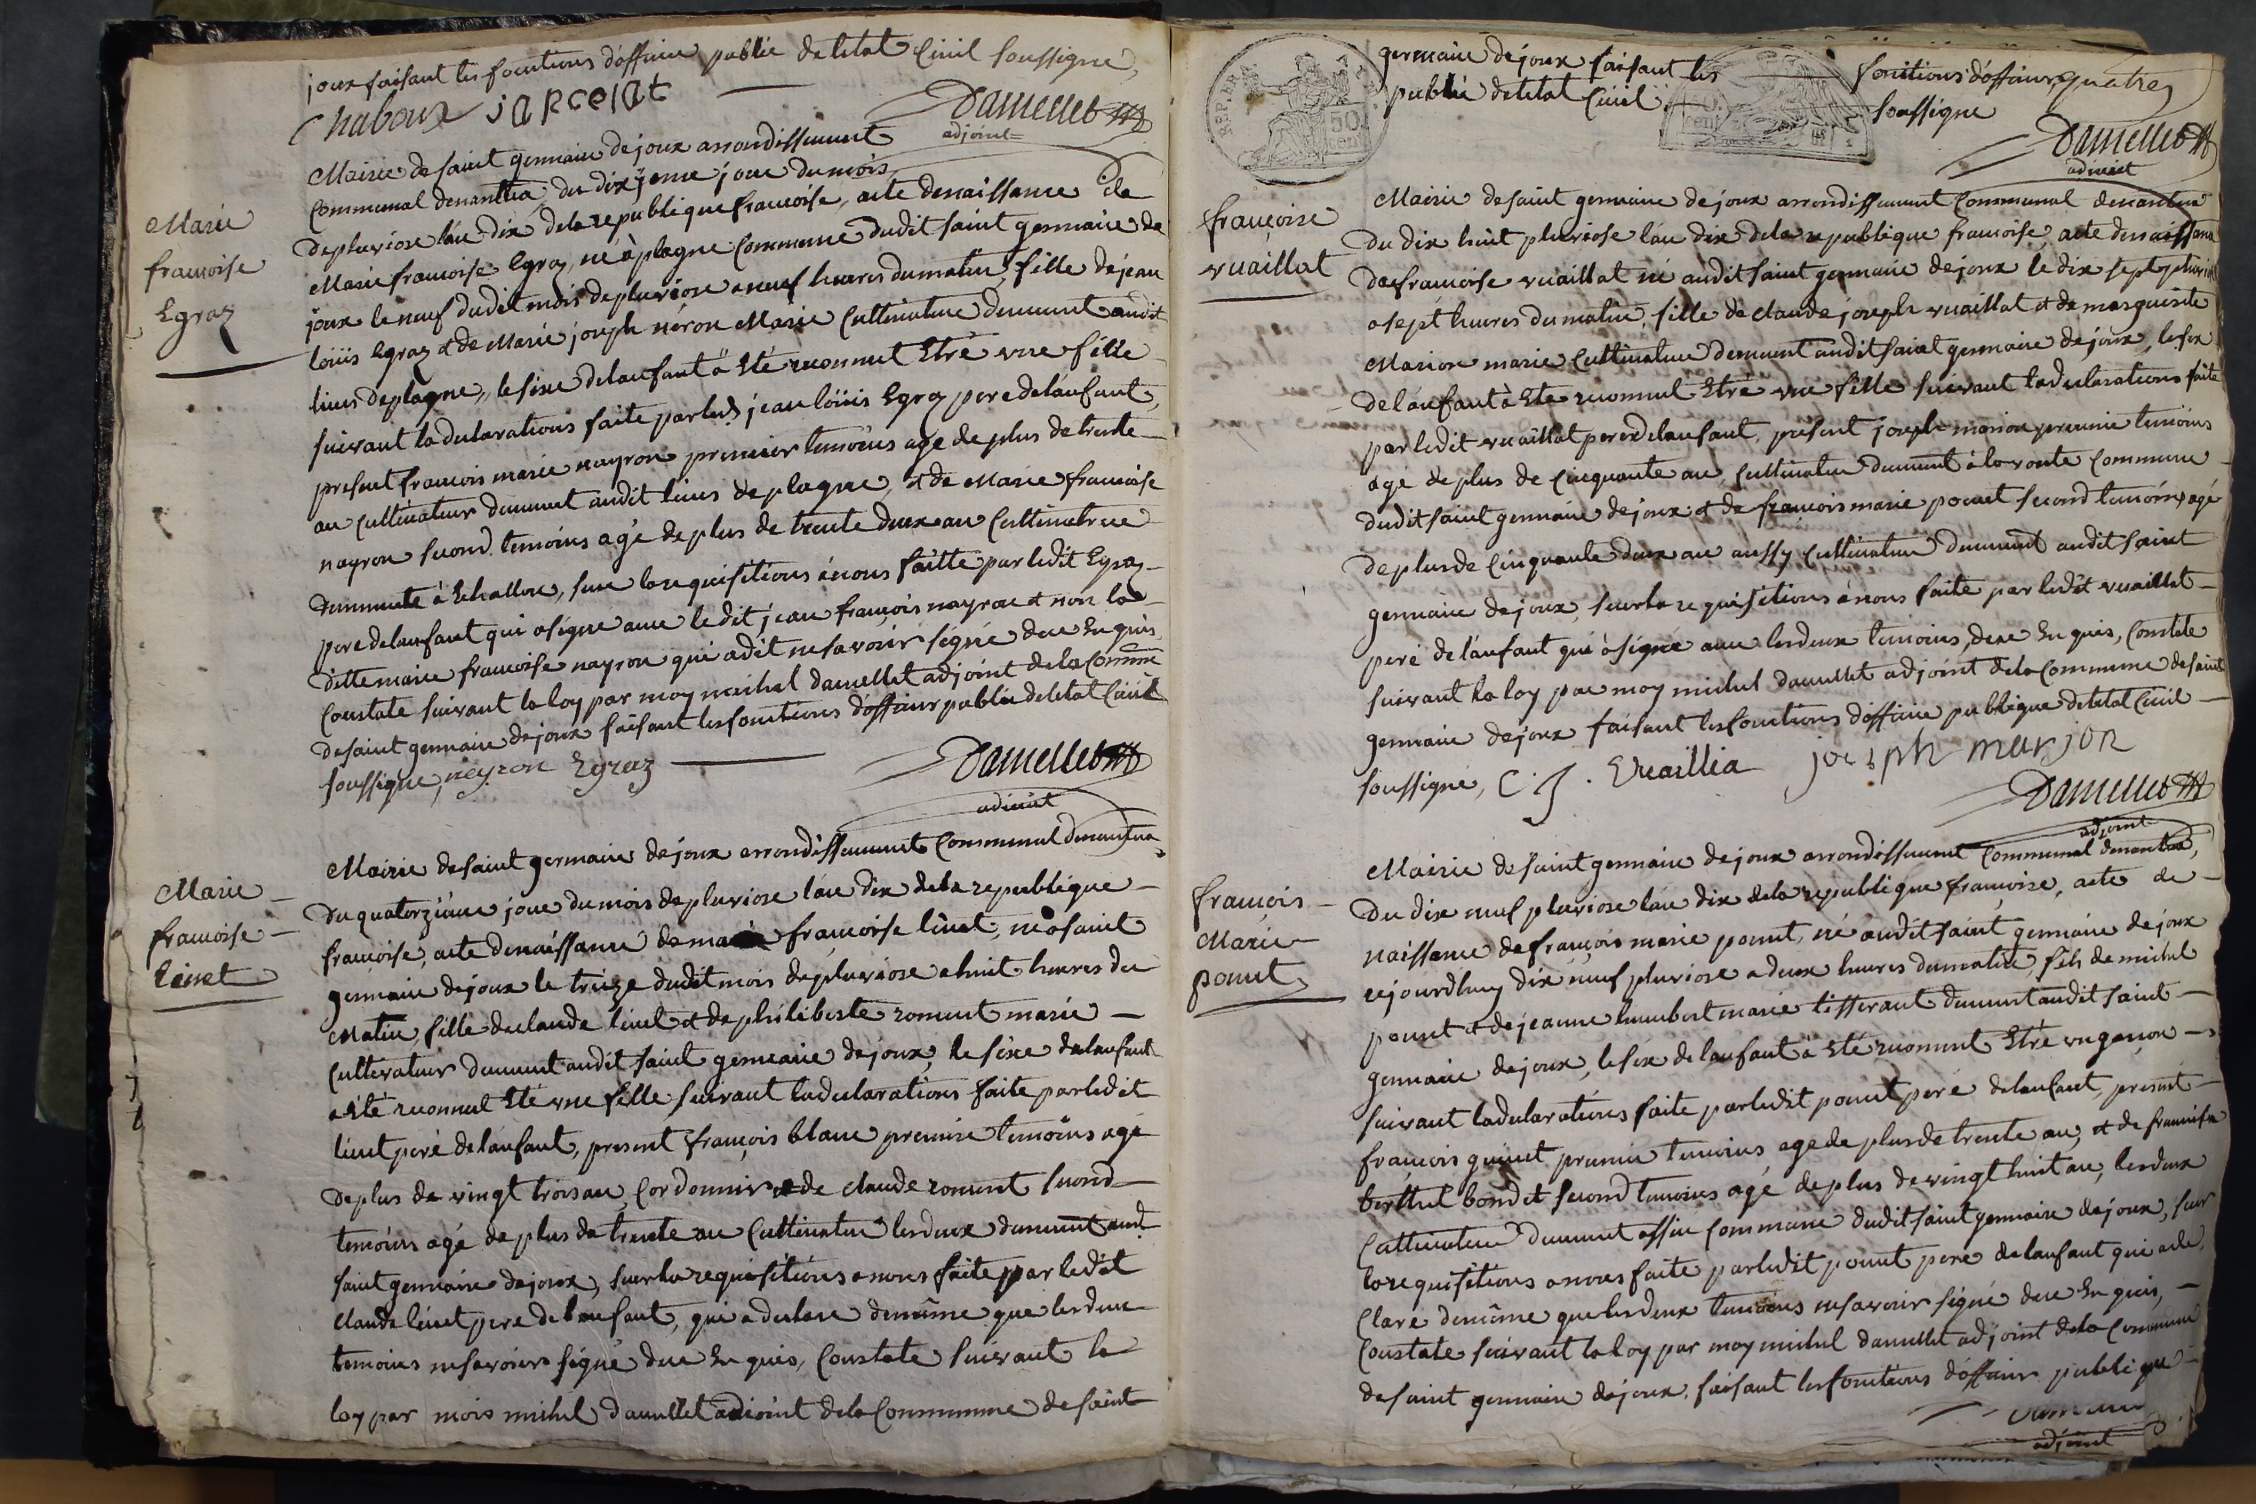 joux faisant les fonctions d'officier public de letat Civil soussigné,
Chaboux jarcelat
Damellet
adjoint
Mairie de saint germain de joux arrondissement
Communal denantua, du dixjeme jour du mois
de pluviose l'an dix dela republique francoise, acte denaissance de
Marie francoise Egraz, né à plagne Commune dudit saint germain de
joux le neuf dudit mois de pluviose a neuf heures du matin, fille de jean
loüis Egraz et de Marie joseph néron Marié Cultivateur demeurant audit
lieux de plagne, le sexe de lanfant a Eté reconnut Etré une fille
suivant la declarations faite par led. jean loüis Egraz pere de lanfant,
present francois marie nayron premier temoins agé de plus de trente
an cultivateur demeurant audit lieux de plagne, et de Marie francoise
nayron second temoins agé de plus de trente deux an Cultivatrice
demeurante à Echallon, sur la requisitions à nous faitte par ledit Egraz
pere de lanfant qui a signé avec le dit jean françois nayron et non la
ditte marie francoise nayron qui a dit ne savoir signé de ce Enquis,
Constate suivant la loy par moy michel damellet adjoint de la Commune
de saint germain de joux faisant les fonctions d'officier public de letat Civil
soussigné, neyron Egraz
Damellet
adjoint
Marie
francoise
Egraz
Mairie de saint germain de joux arrondissement Communal denantua
Du quatorzieme jour du mois de pluviose l'an dix dela republique
françoise, acte denaissance de marie francoise linet, né a saint
germain de joux le treize dudit mois de pluviose a huit heures du
Matin, fille de claude linet et de philiberte romont marié
Cultivateur demeurant audit saint germain de joux, le sexe de lanfant
a Eté reconnut Eté une fille suivant la declarations faite par ledit
linet peré de lanfant, present françois blanc premier temoins agé
de plus de vingt trois an, Cordonnier et de claude romont second
temoins agé de plus de trente an Cultivateur les deux demeurant aud.
saint germain de joux, sur la requisitions a nous faite par ledit
claude linet pere de lanfant, qui a declare de même que les deux
temoins ne savoir signé de ce Enquis, Constate suivant la
loy par mois michel damellet adjoint de la Commune de saint
Marie
francoise
linet
germain de joux faisant les fonctions d'officier quatre
public de letat Civil soussigné
REP. FRA.
50
cent
Damellet
adjoint
Mairie de saint germain de joux arrondissement Communal denantua
Du dix huit pluviose l'an dix dela republique francoise, acte denaissance
de francoise vuaillat né audit saint germain de joux le dix sept pluviose
a sept heures du matin, fille de claude joseph vuaillat et de marguerite
Marion marié Cultivateur demeurant audit saint germain de joux, le sex
de lanfant à Eté reconnut Etré une fille suivant la declarations faite
par ledit vuaillat pere de lanfant, present joseph marion premier temoins
agé de plus de Cinquante an Cultivateur demeurant à la voute Commune
dudit saint germain de joux et de françois marie ponet second temoins agé
de plus de Cinquante deux an aussy Cultivateur demeurant audit saint
germain de joux, sur la requisitions à nous faite par ledit vuaillat
peré de lanfant qui à signé avec les deux temoins, de ce Enquis, Constate
suivant la loy par moy michel damellet adjoint de la Commune de saint
germain de joux faisant les fonctions d'officier publique de letat Civil
soussigné, C. J. Vuaillia joseph marjon
Damellet
adjoint
françoise
vuaillat
Mairie de saint germain de joux arrondissement Communal denantua,
Du dix neuf pluviose l'an dix dela republique françoise, acte de
naissance de françois marie ponet, né audit saint germain de joux
cejourdhuy dix neuf pluviose a deux heures du matin, fils de michel
ponet et de jeanne humbert marié tisserant demeurant audit saint
germain de joux, le sex de lanfant à Eté reconnut Etré un garçon
suivant la declarations faite par ledit ponet peré de lanfant, present
françois guinet premier temoins agé de plus de trente an, et de francois
berthel bondet second temoins agé de plus de vingt huit an, les deux
Cultivateur demeurant Commune dudit saint germain de joux, sur
la requisitions a nous faite par ledit ponet peré de lanfant qui a de
Claré de même que les deux temoins ne savoir signé de ce Enquis,
Constate suivant la loy par moy michel damellet adjoint de la Commune
de saint germain de joux faisant les fonctions d'officier publique
Damellet
adjoint
françois
Marie
ponet